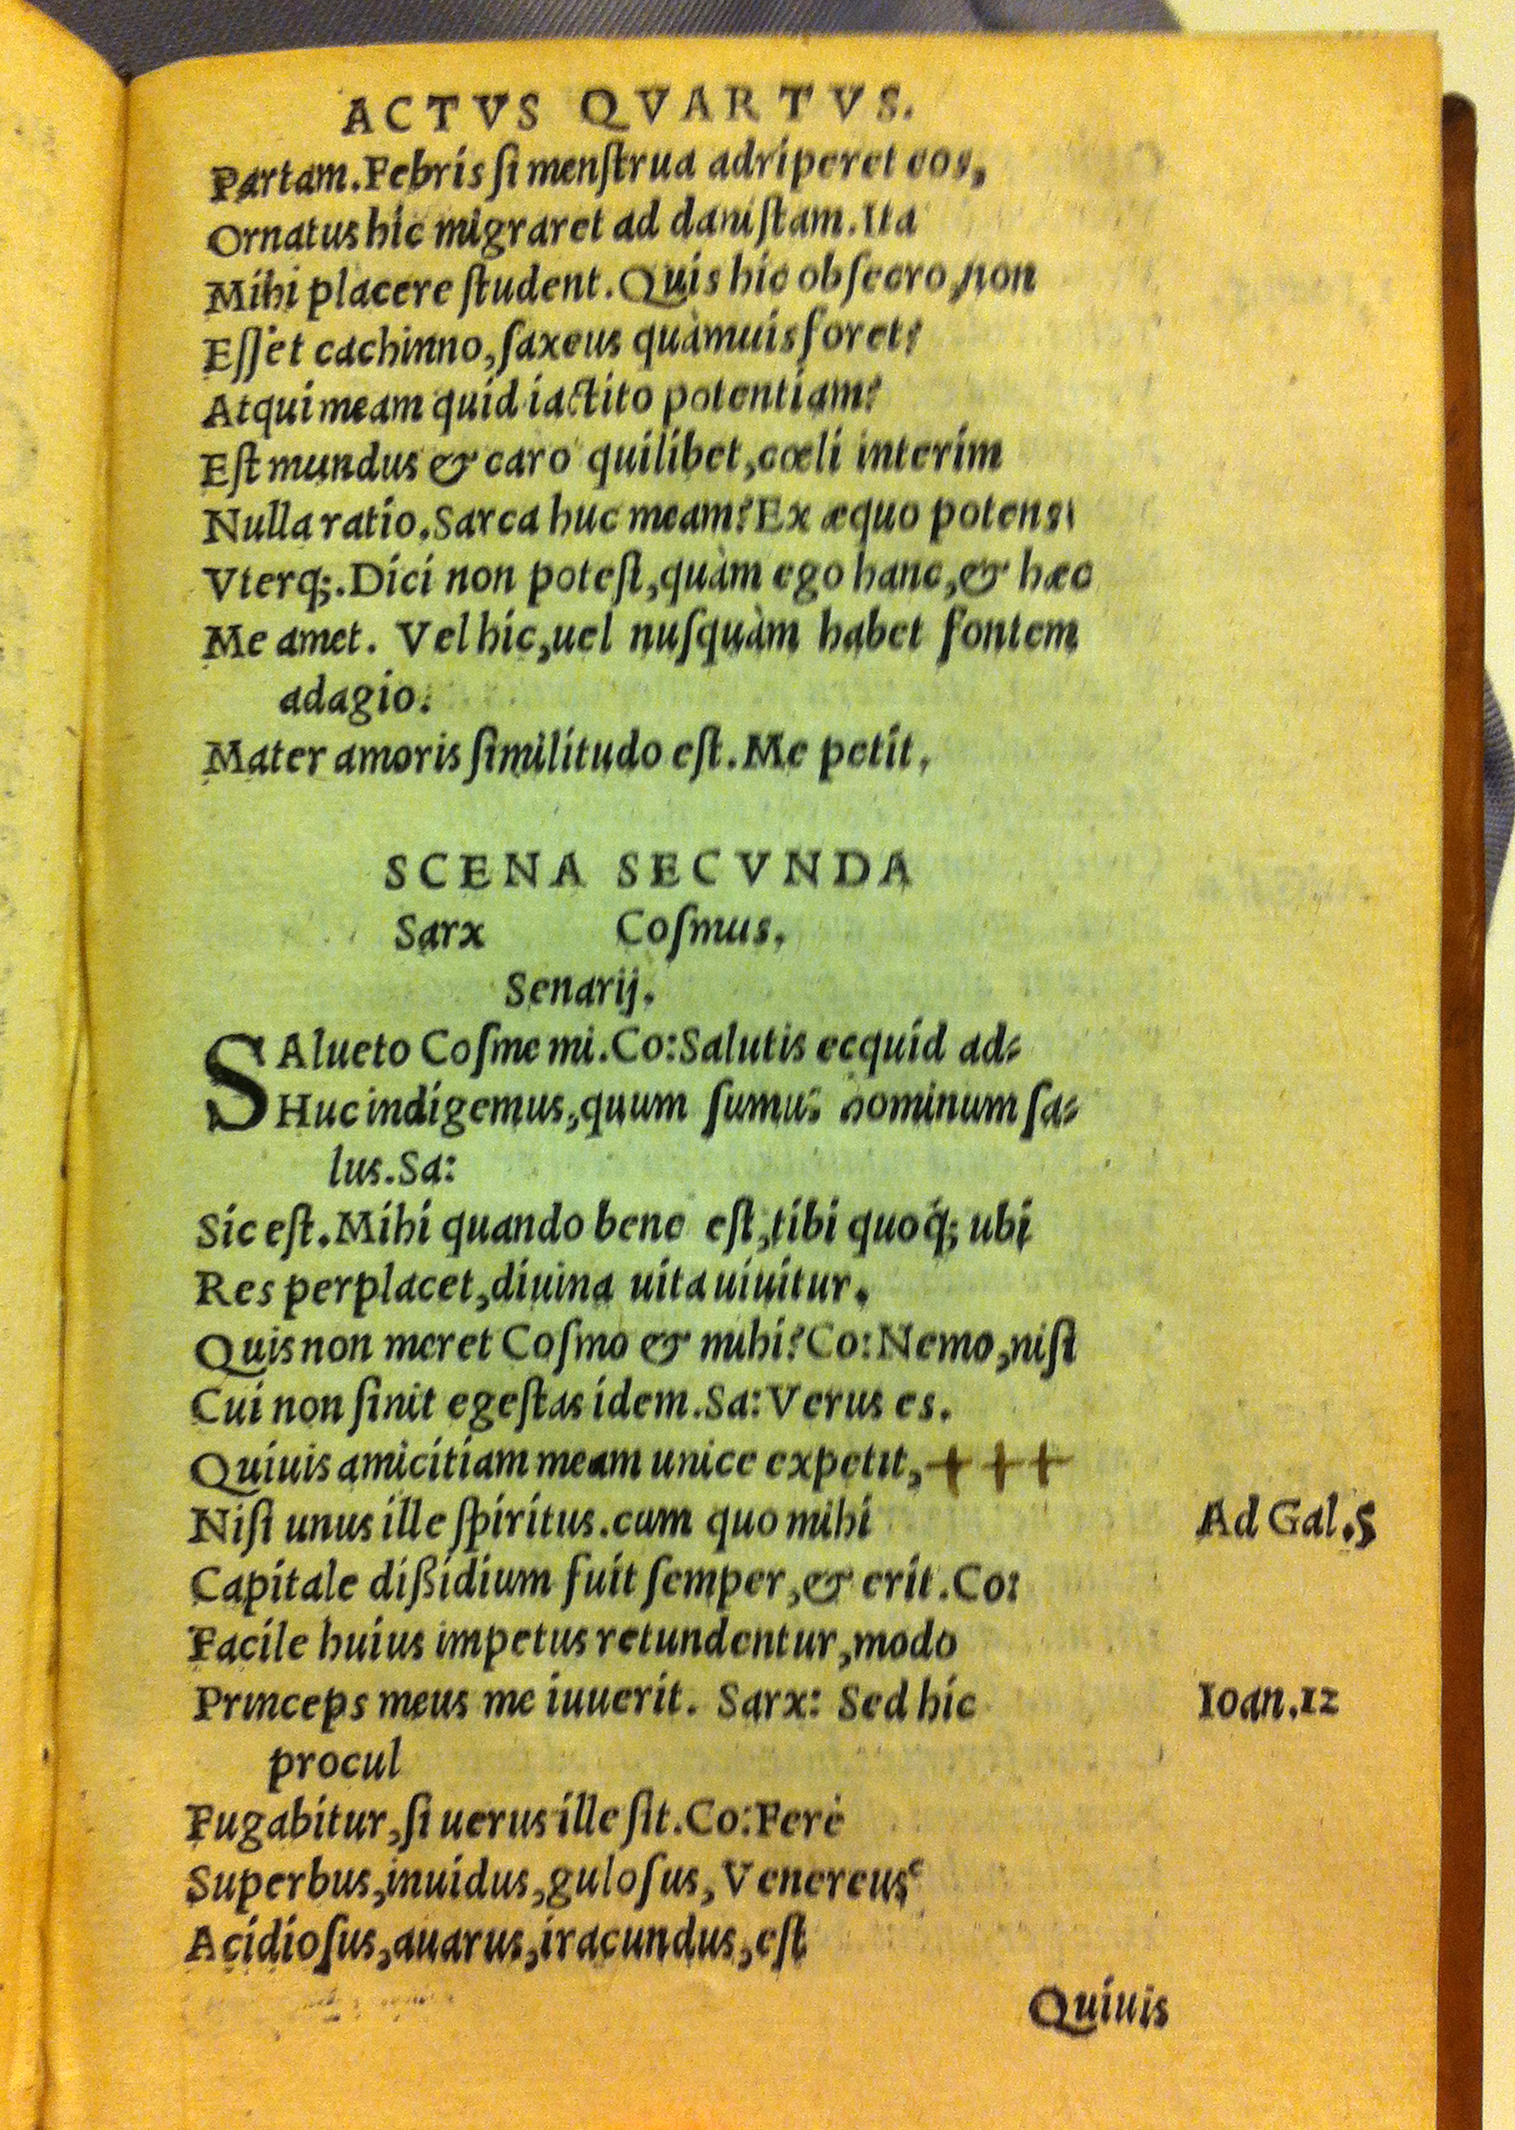 ACTVS QVARTVS.
Partam. Febris ſi menſtrua adriperet eos,
Ornatus hic migraret ad daniſtam. Ita
Mihi placere ſtudent. Quis hic obſecro, non
Eſſet cachinno, ſaxeus quàmuis foret?
Atqui meam quid iactito potentiam?
Eſt mundus & caro quilibet, cœli interim
Nulla ratio. Sarca huc meam? Ex æquo potens
Vterq;. Dici non poteſt, quàm ego hanc, & hæc
Me amet. Vel hic, uel nuſquàm habet fontem
adagio.
Mater amoris ſimilitudo eſt. Me petit,
SCENA SECVNDA
Sarx Coſmus,
Senarij.
SAlueto Coſme mi. Co: Salutis ecquid ad-
Huc indigemus, quum ſumus hominum ſa-
lus. Sa:
Sic eſt. Mihi quando bene eſt, tibi quoq́; ubi
Res perplacet, diuina uita uiuitur.
Quis non meret Coſmo & mihi? Co: Nemo, niſi
Cui non ſinit egeſtas idem. Sa: Verus es.
Quiuis amicitiam meam unice expetit, +++
Niſi unus ille ſpiritus. cum quo mihi
Ad Gal. 5
Capitale dißidium fuit ſemper, & erit. Co:
Facile huius impetus retundentur, modo
Princeps meus me iuuerit. Sarx: Sed hic
Ioan. 12
procul
Fugabitur, ſi uerus ille ſit. Co: Ferè
Superbus, inuidus, guloſus, Venereus
Acidioſus, auarus, iracundus, eſt
Quiuis